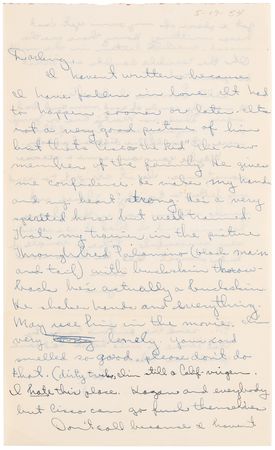 5-17-54
Darling,
I haven't written because
I have fallen in love. It had
to happen sooner or later. It's
not a very good picture of him
but that's "Cisco the Kid" the new
member of the family. He gives
me confidence. He makes my hands
and my heart strong. He's a very
spirited horse but well trained.
That's my trainer in the picture
Throughbred Palomino (black main
and tail) with
back. he's actually a
He shakes hands and everything.
May use him in the movie. I'm
very lonely. Your
smelled so good. please don't do
that. (dirty tricks) I'm still a Calif. virgin.
I hate this place. and everybody
but Cisco can go fuck themselves
Don't call because I haven't